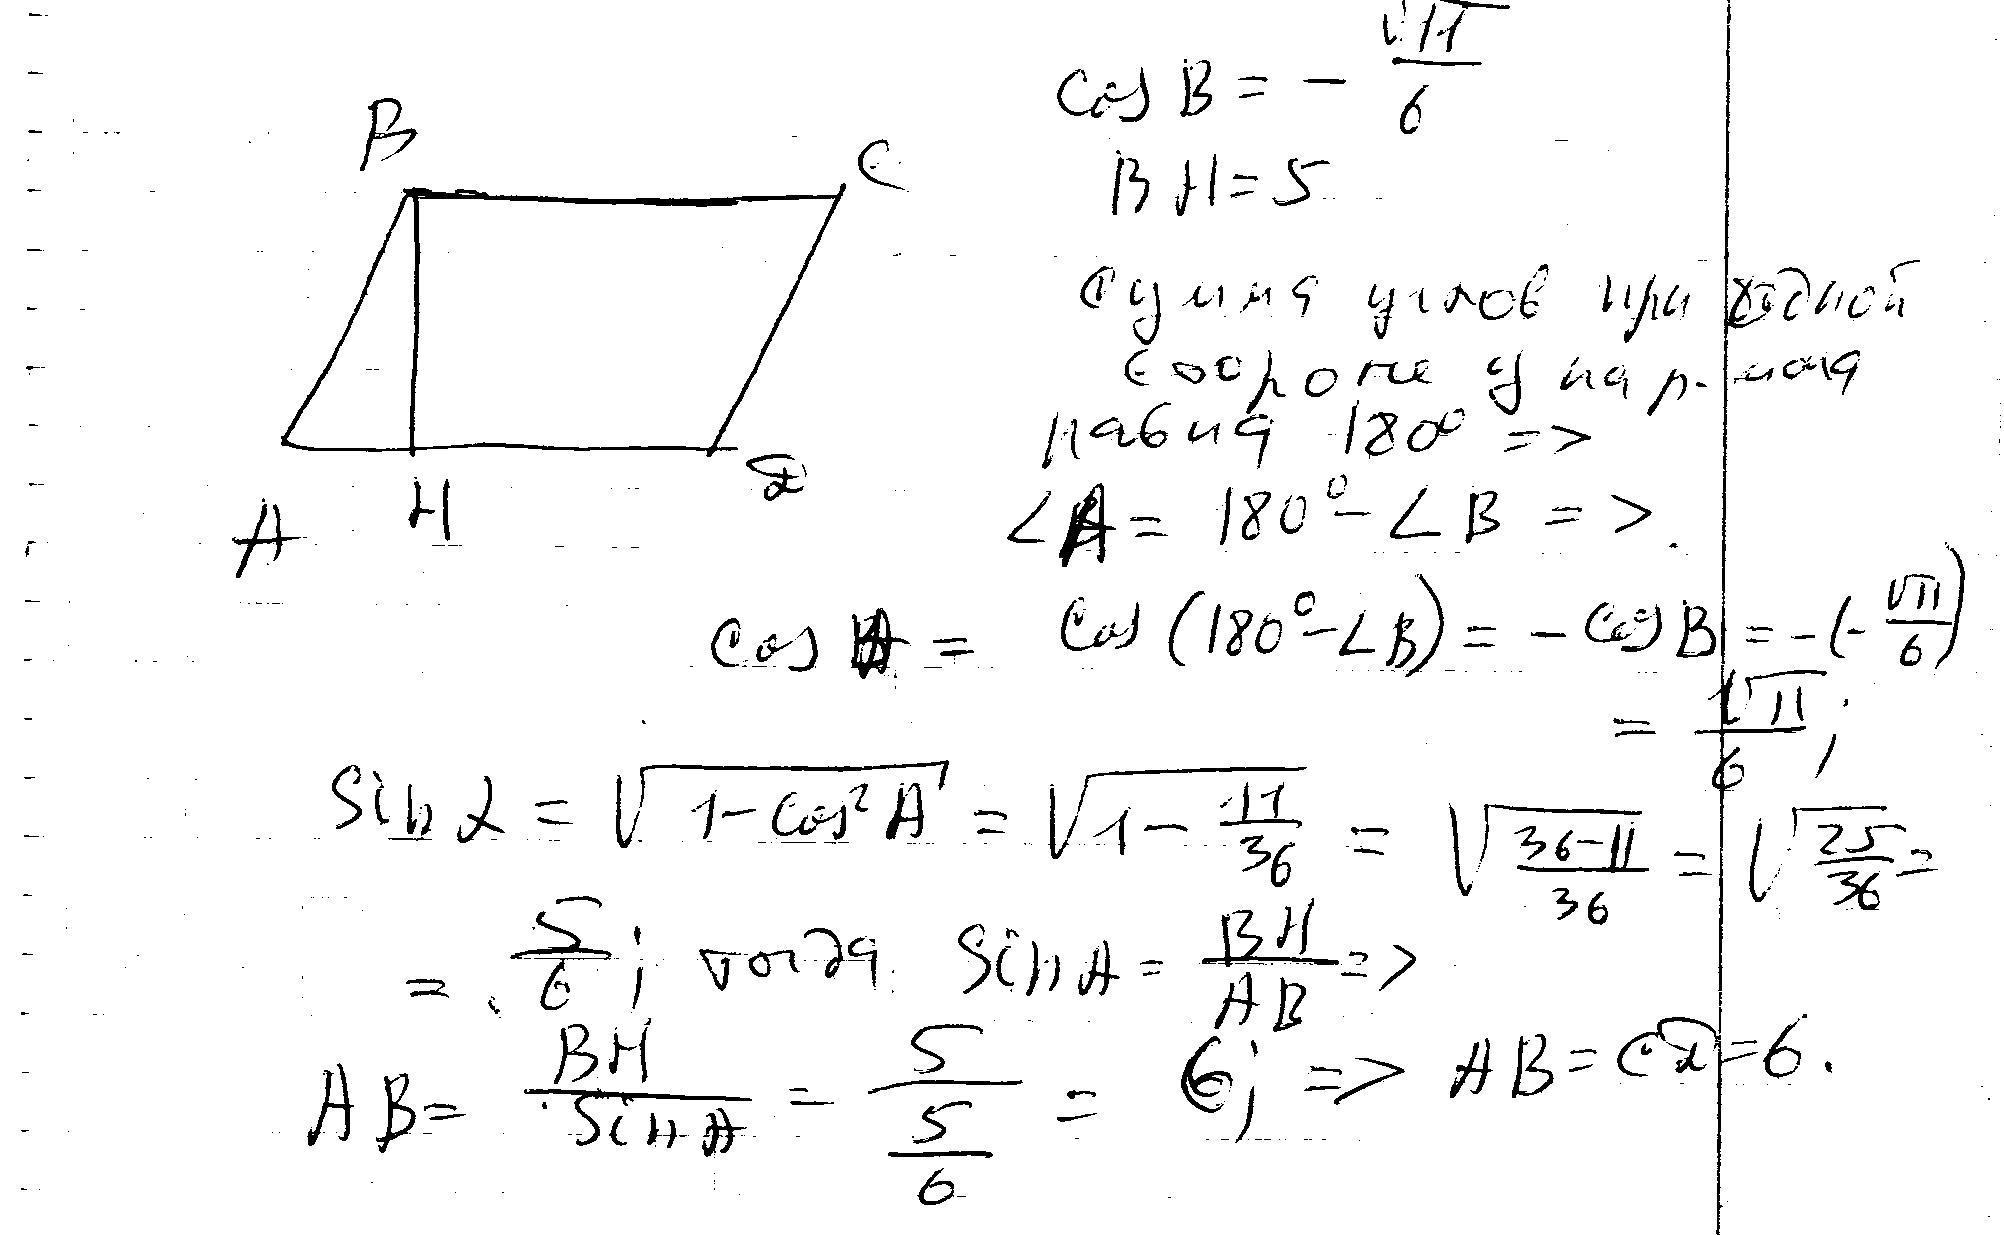 cos B = - √11/6
B
C
BH = 5
Сумма углов при одной
стороне у пар-мма
равна 180° =>
A H D
∠A = 180° - ∠B =>
cos A = cos (180° - ∠B) = - cos B = - (- √11/6)
= √11/6 ;
Sin α = √(1 - cos² A) = √(1 - 11/36) = √((36-11)/36) = √(25/36) =
= 5/6 ; тогда Sin A = BH/AB =>
AB = BH/Sin A = 5/(5/6) = 6; => AB = CD = 6.